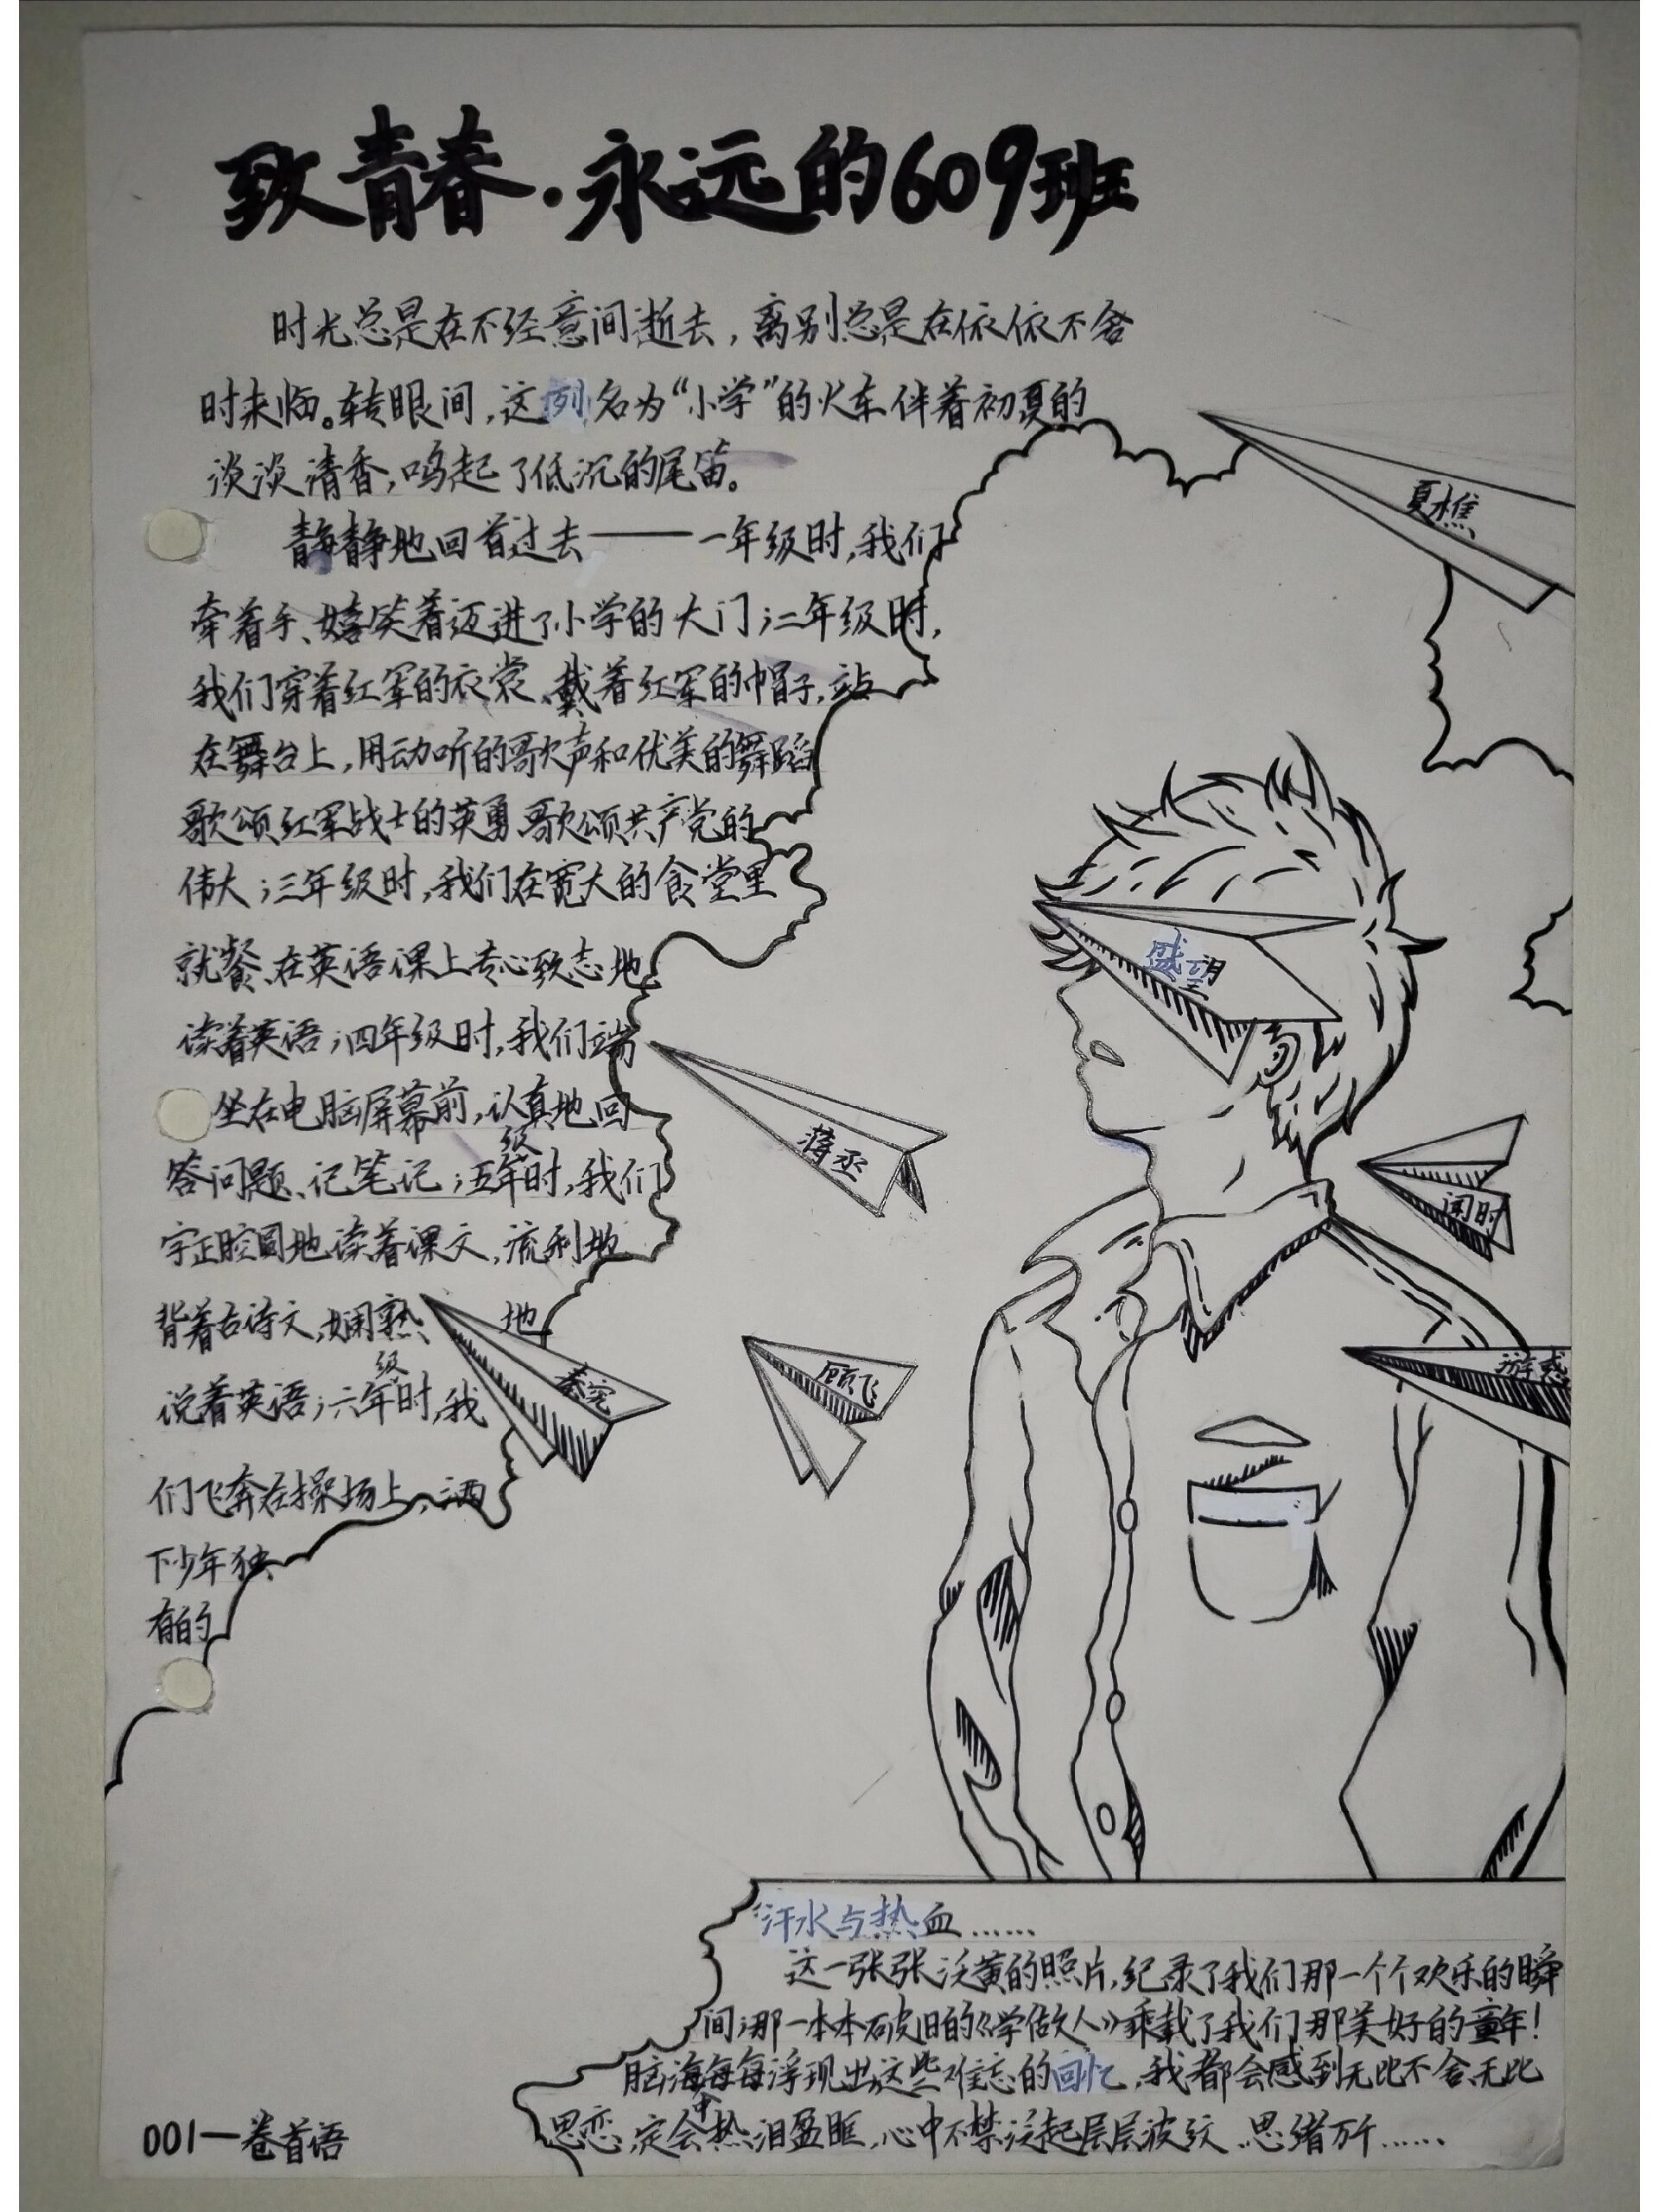 致青春·永远的609班
时光总是在不经意间逝去，离别总是在依依不舍
时来临。转眼间，这列名为“小学”的火车伴着初夏的
淡淡清香，鸣起了低沉的尾笛。
静静地回首过去——一年级时，我们
牵着手、嬉笑着迈进了小学的大门；二年级时，
我们穿着红军的衣裳、戴着红军的帽子，站
在舞台上，用动听的歌声和优美的舞蹈
歌颂红军战士的英勇、歌颂共产党的
伟大；三年级时，我们在宽大的食堂里
就餐、在英语课上专心致志地
读着英语；四年级时，我们端
坐在电脑屏幕前，认真地回
答问题、记笔记；五年级时，我们
字正腔圆地读着课文，流利地
背着古诗文，娴熟地
说着英语；六年级时，我
们飞奔在操场上，洒
下少年独
有的
夏樵
盛望
蒋丞
闻时
秦究
顾飞
游惑
汗水与热血……
这一张张泛黄的照片，纪录了我们那一个个欢乐的瞬
间；那一本本破旧的《学做人》乘载了我们那美好的童年！
脑海中每每浮现出这些难忘的回忆，我都会感到无比不舍、无比
思恋，定会热泪盈眶，心中不禁泛起层层波纹，思绪万千……
001—卷首语